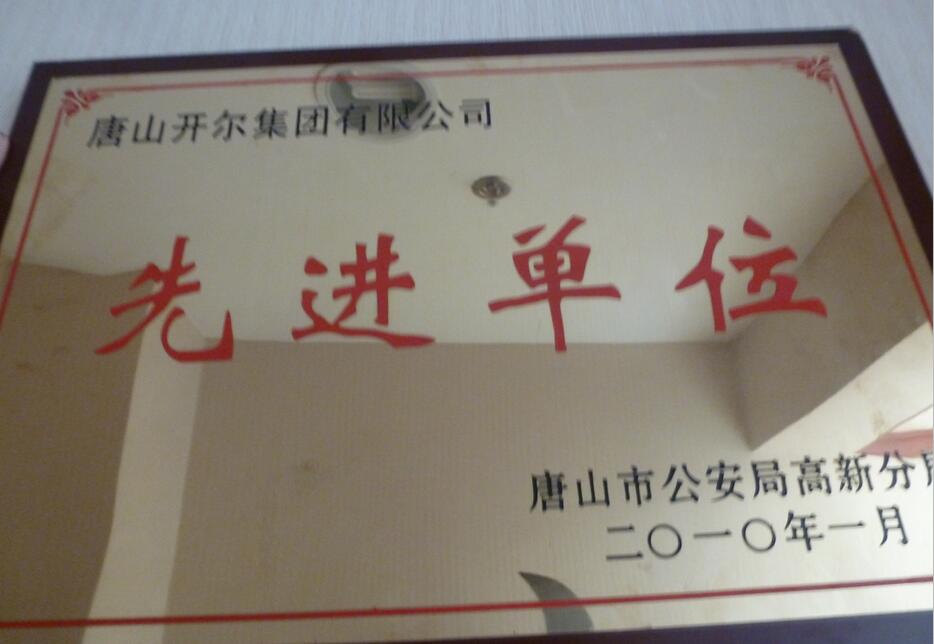 唐山开尔集团有限公司
先进单位
唐山市公安局高新分局
二〇一〇年一月